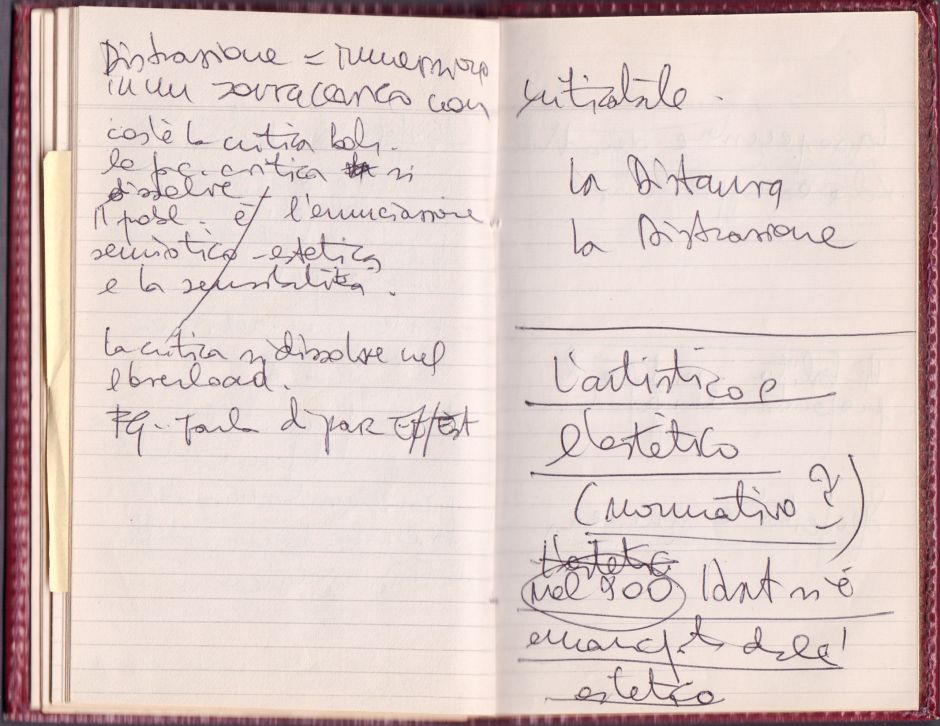 Distrazione = immersione
in un sovraccarico non
cos'è la critica
la critica si
dissolve
Il probl. è l'enunciazione
semiotico-estetica
e la sensibilità.
La critica si dissolve nel
l'overload.
FG - parla di
criticabile.
La Distanza
La Distrazione
L'artistico e
l'estetico
(normativo?)
l'estetic
nel 900 l'art si è
emancipato dall'
estetico